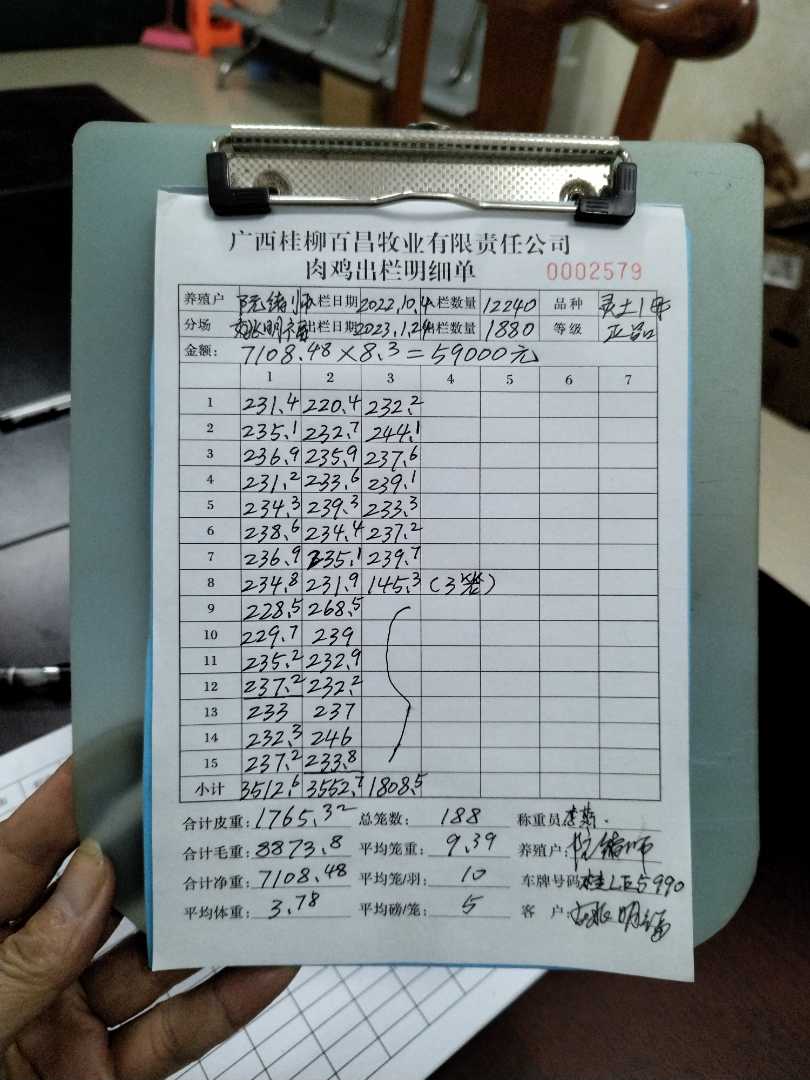 广西桂柳百昌牧业有限责任公司
肉鸡出栏明细单 0002579
养殖户 阮绪师 入栏日期 2022.10.4 入栏数量 12240 品种 灵土1号
分场 明福 出栏日期 2023.1.24 出栏数量 1880 等级 正品
金额: 7108.48×8.3=59000元
1 2 3 4 5 6 7
1 231.4 220.4 232.2
2 235.1 232.7 244.1
3 236.9 235.9 237.6
4 231.2 233.6 239.1
5 234.3 239.3 233.3
6 238.6 234.4 237.2
7 236.9 235.1 239.7
8 234.8 231.9 145.3 (3 )
9 228.5 268.5
10 229.7 239
11 235.2 232.9
12 237.2 232.2
13 233 237
14 232.3 246
15 237.2 233.8
小计 3512.6 3552.7 1808.5
合计皮重: 1765.32 总笼数: 188 称重员:
合计毛重: 8873.8 平均笼重: 9.39 养殖户: 阮绪师
合计净重: 7108.48 平均笼/羽: 10 车牌号码: 桂LE5990
平均体重: 3.78 平均磅/笼: 5 客户: 明福